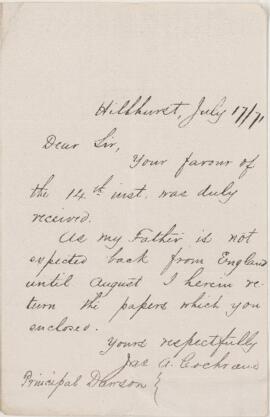 Hillhurst, July 17/71
Dear Sir,
Your favour of
the 14th inst. was duly
received.
As my Father is not
expected back from England
until August I herein re-
turn the papers which you
enclosed.
Yours respectfully
Jas A. Cochrane
Principal Dawson